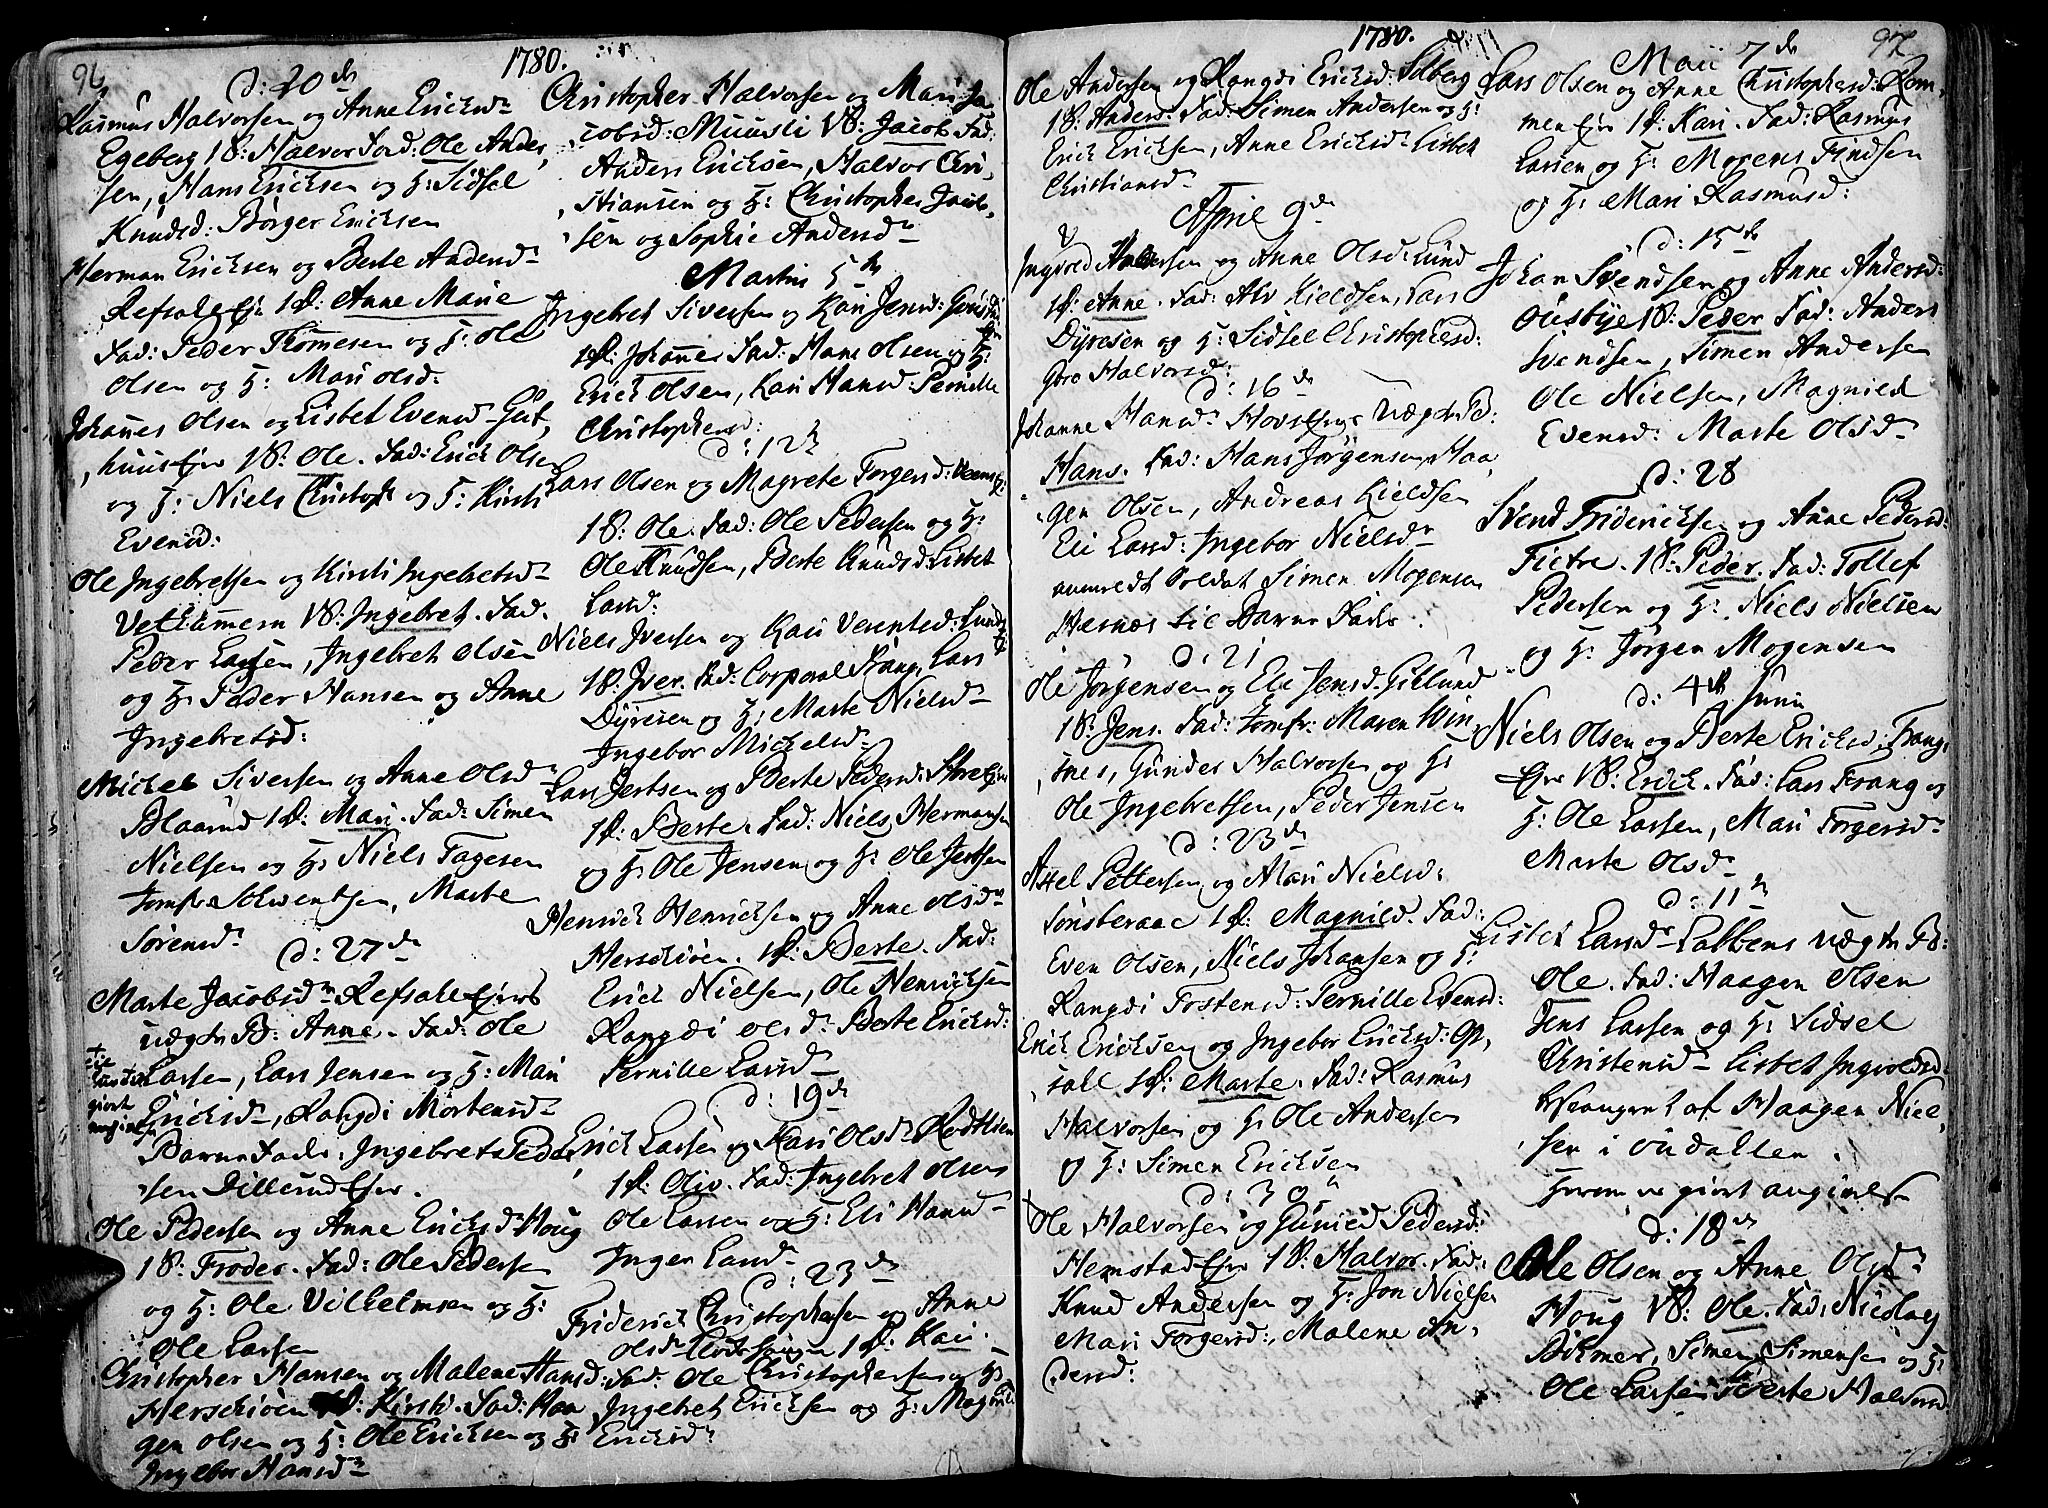 96
1780.
d: 20de
Rasmus Halvorsen og Anne Ericksd
Egeberg 1 B: Halvor Fad: Ole Ander
sen, Hans Ericksen og H: Sidsel
Knudsd: Børger Ericksen
Herman Ericksen og Berte Andersd
Refsale Eje 1 P: Anne Marie
Fad: Peder Thomesen og H: Ole
Olsen og H: Mari olsd:
Johannes Olsen og Lisbet Evensd Gut,
huus Ejer 1 B: Ole. Fad: Erick Olsen
og H: Niels Christoph og H: Kirsti
Evensd:
Ole Ingebretsen og Kirsti Ingebretsd
Vethammern 1 B: Ingebret. Fad:
Peder Larsen, Ingebret Olsen
og H: Peder Hansen og Anne
Ingebretsd:
Michel Siversen og Anne Olsd
Blaarud 1 P: Mari. Fad: Simen
Nielsen og H: Niels Tagesen
Jomfr Schwentsen, Marte
Sørensd
d: 27de
Marte Jacobsd Refsale Ejers
uægte B: Anne. Fad: Ole
Larsen, Lars Jensen og H: Mari
Ericksd, Rangdi Mortensd
Barne Fadr: Ingebret Peder
sen Dillerud Ejer.
Ole Pedersen og Anne Ericksd Houg
1 B: Troder. Fad: Ole Pedersen
og H: Ole Vilhelmsen og H:
Ole Larsen
Christopher Hansen og Malene Hansd:
Herschiøen P: Kirsti. Fad: Haa
gen Olsen og H: Ole Ericksen og H:
Ingebor Hansd
Christopher Halvorsen og Mari Ja
cobsd: Muusli 1 B: Jacob Fad:
Anders Ericksen, Halvor Chri
stiansen og H: Christopher Jacob
sen og Sophie Andersd
Martius 5te
Ingebret Siversen og Kari Jensd:
1 B: Johannes Fad: Hans Olsen og H:
Erick Olsen, Kari Hansd: Pernille
Christophersd:
d: 12te
Lars Olsen og Magrete Torgersd:
1 B: Ole. Fad: Ole Pedersen og H:
Ole Knudsen, Berte Knudsd: Lisbet
Larsd:
Niels Iversen og Kari Berentsd: Lunds
1 B: Iver. Fad: Corporal Strang, Lars
Dyresen og H: Marte Nielsd
Ingebor Michelsd
Lars Jertsen og Berte Pedersd:
1 P: Berte. Fad: Niels Hermansen
og H: Ole Jensen og H: Ole Jertsen
Henrick Henricksen og Anne Olsd
Herschiøen. 1 P: Berte. Fad:
Erick Nielsen, Ole Henricksen
Rangdi Olsd: Berte Ericksd:
Pernille Larsd
d: 19de
Erick Larsen og Kari Olsd Rødtlien
1 P: Oliv. Fad: Ingebret Olsens
Ole Larsen og H: Eli Hansd
Inger Larsd
d: 23de
Friderick Christophersen og Anne
Olsd 1 P: Kari.
Fad: Ole Christophersen og H:
Ingebret Ericksen og H: Magnild
Ericksd:
1780.
97
Ole Andersen og Rangdi Ericksd: Solberg
1 B: Anders. Fad: Simen Andersen og H:
Erick Ericksen, Anne Ericksd Lisbet
Christiansd
April 9de
Ingvold Andersen og Anne Olsd: Lund
1 P: Anne. Fad: Alv Kieldsen, Lars
Dyresen og H: Sidsel Christophersd:
Gbro Halvorsd:
d: 16de
Johanne Hansd Hovs Ejer uægte B:
Hans. Fad: Hans Jørgensen, Haa
gen Olsen, Andreas Kieldsen
Eli Larsd: Ingebor Nielsd
anmeldt Soldat Simen Mogensen
Hæsnæs til Barne Fader.
d: 21
Ole Jørgensen og Eli Jensd. Giblund
1 B: Jens. Fad: Jomfr: Maren Win
snes, Gunder Halvorsen og H:
Ole Ingebretsen, Peder Jensen
d: 23de
Axel Pettersen og Mari Nielsd:
Tønsberaae 1 P: Magnild. Fad:
Even Olsen, Niels Johansen og H:
Rangdi Tostensd: Pernille Evensd:
Erick Ericksen og Ingebor Ericksd: Op,
sall 1 P: Marte. Fad: Rasmus
Halvorsen og H: Ole Andersen
og H: Simen Ericksen
d: 30
Ole Halvorsen og Gunild Pedersd:
Hemstad Ejer 1 B: Halvor. Fad:
Knud Andersen og H: Jon Nielsen
Mari Torgersd:, Malene An,
dersd:
Maii 7de
Lars Olsen og Anne Christophersd: Rom,
men Ejer 1 P: Kari. Fad: Rasmus
Larsen og H: Mogens Findsen
og H: Mari Rasmusd:
d: 15de
Johan Svendsen og Anne Andersd:
Ousbye 1 B: Peder. Fad: Anders
Svendsen, Simen Andersen
Ole Nielsen, Magnild
Evensd: Marte Olsd
d: 28
Svend Fridericksen og Anne Pedersd:
Tietre. 1 B: Peder. Fad: Tollef
Pedersen og H: Niels Nielsen
og H: Jørgen Mogensen
d: 4de Junii
Niels Olsen og Berte Ericksd: Frang,
Ejer 1 B: Erick. Fad: Lars Frang og
H: Ole Larsen, Mari Torgersd
Marte Olsd
d: 11te
Lisbet Larsd Labbens uægte B:
Ole. Fad: Haagen Olsen
Jens Larsen og H: Sidsel
Christensd Lisbet Ingvoldsd
besvangret af Haagen Niel,
sen i Oudallen.
Herom er giort angivelse
d: 18de
Ole Olsen og Anne Olsd
Houg 1 B: Ole. Fad: Nicolay
Dikmer, Simen Simensen og H:
Ole Larsen Berte Halvorsd